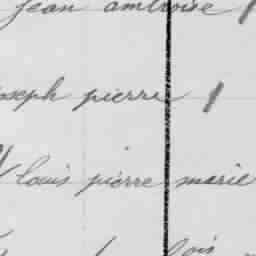 jean ambroise
joseph pierre
louis pierre marie